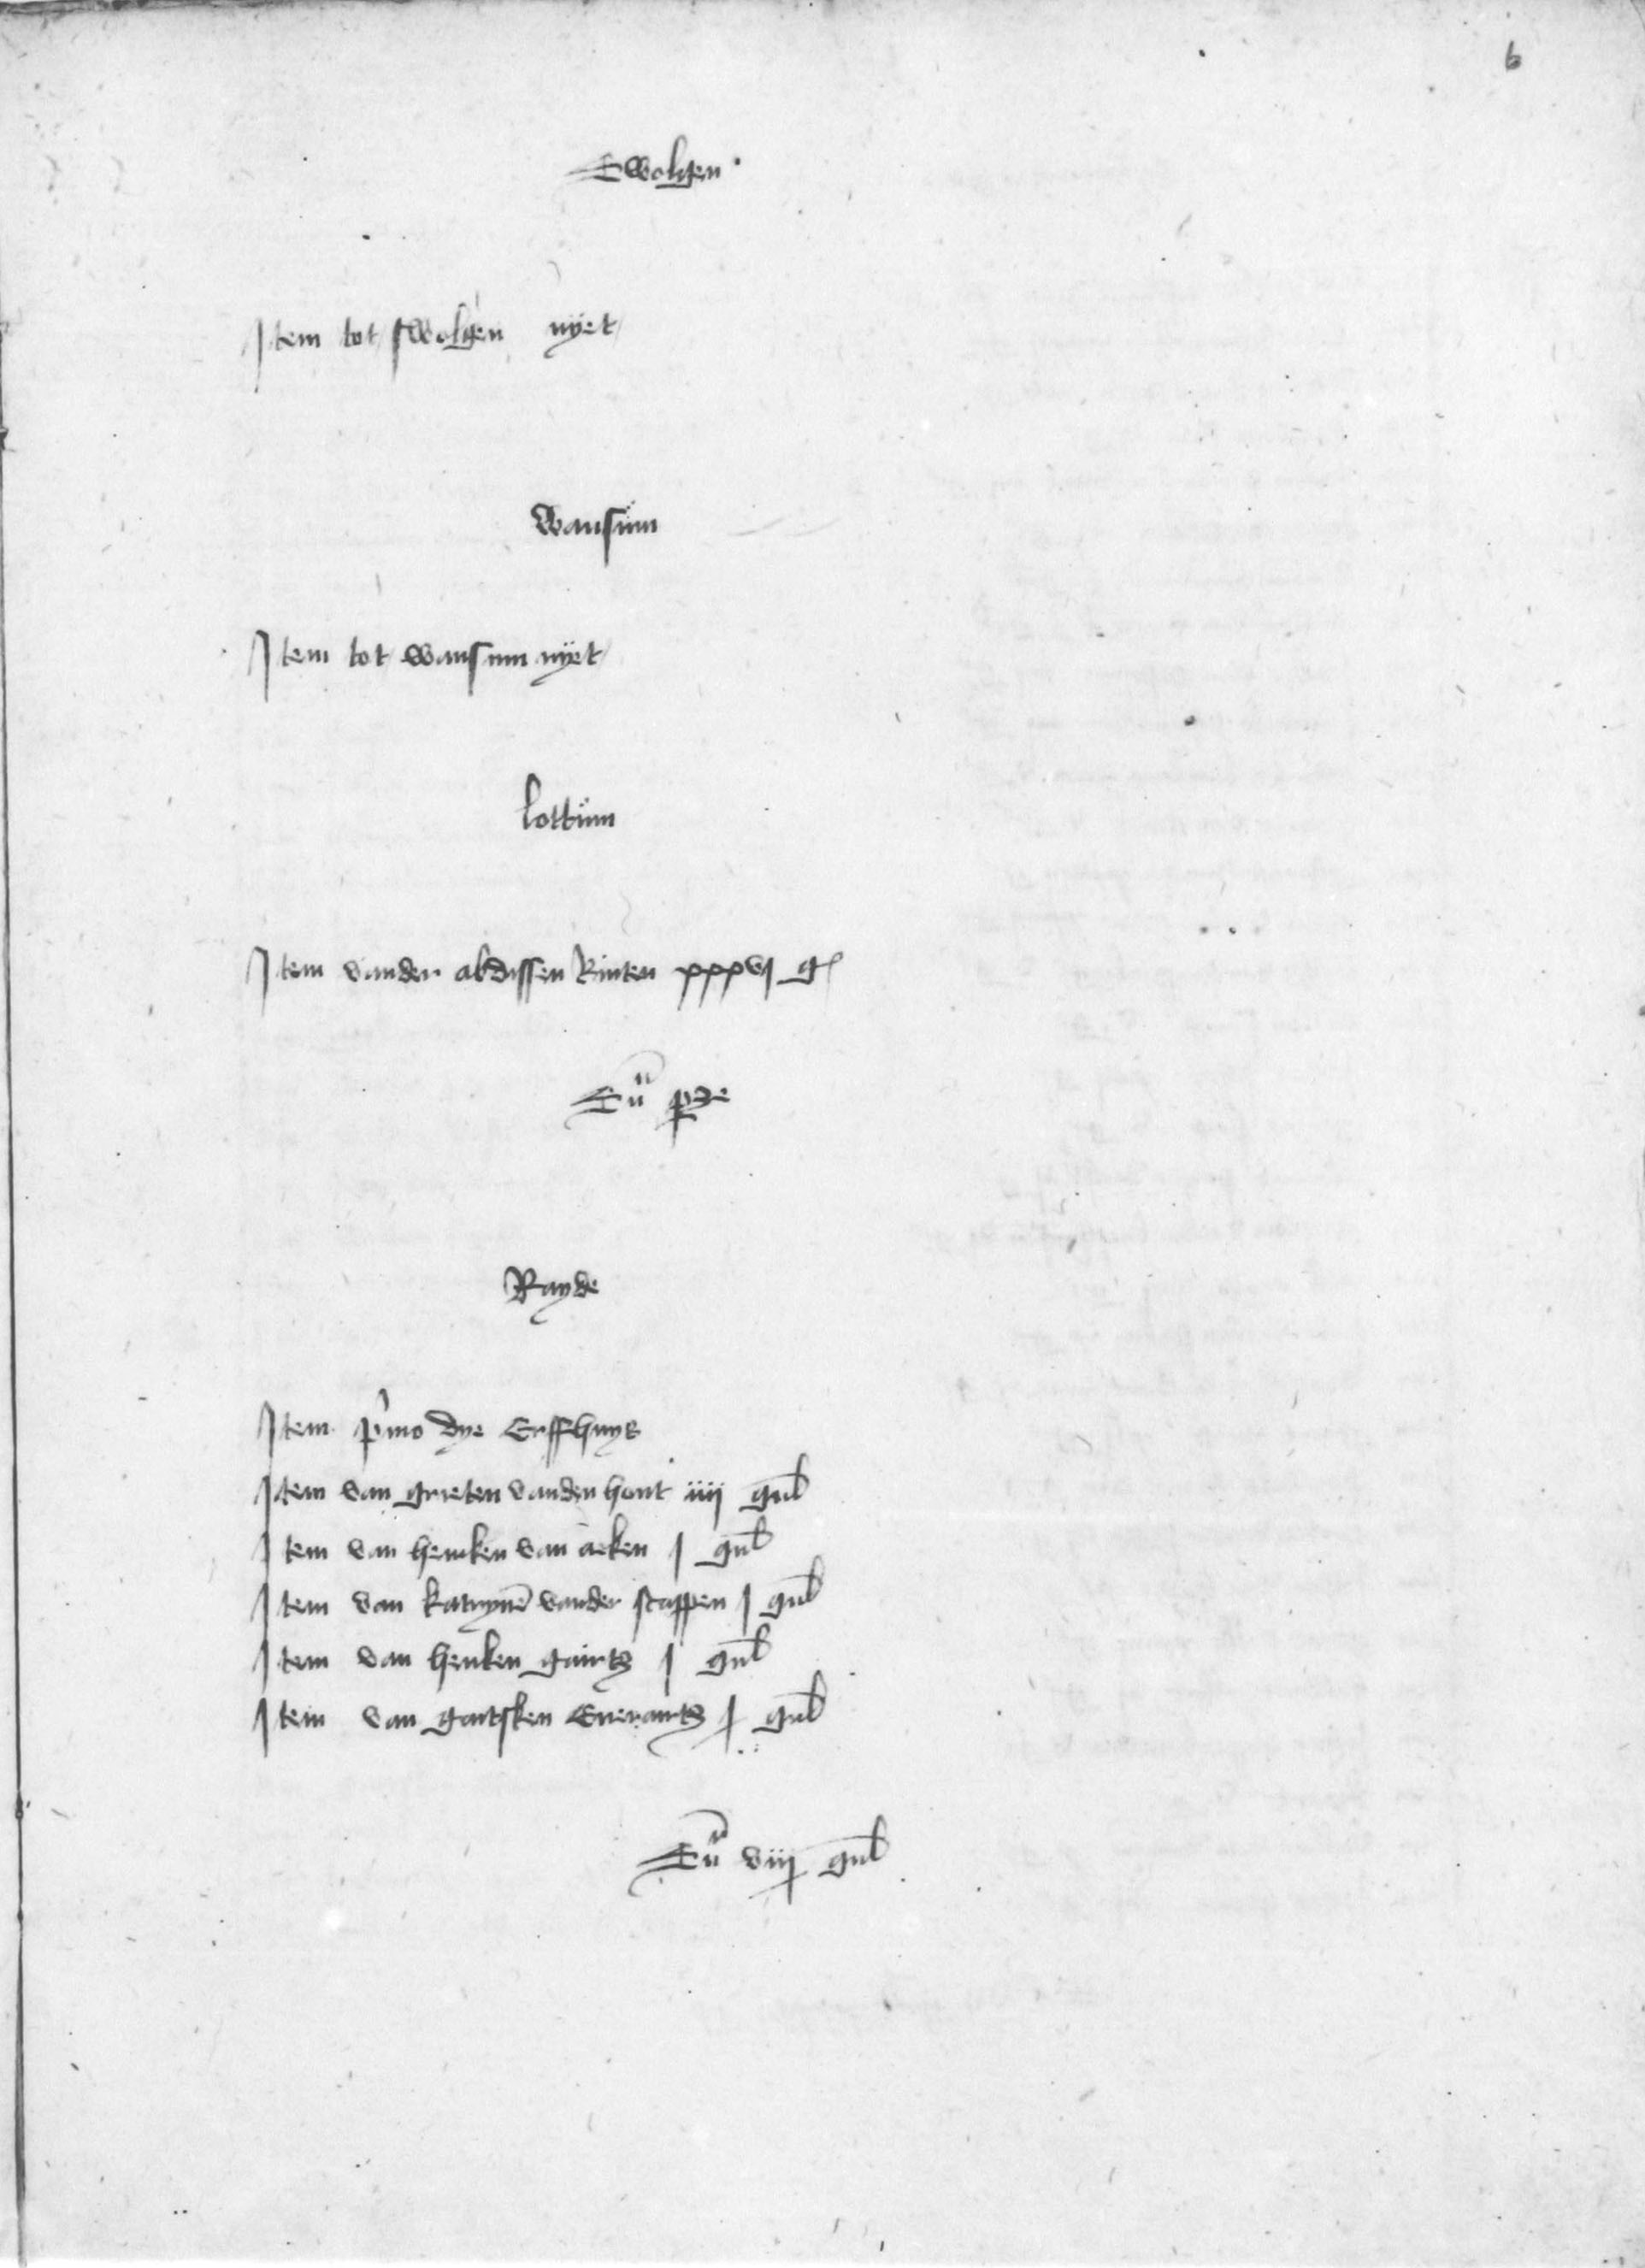 6
Swolgen
Item tot swolgen nyet
Wansum
Item tot wansum nyet
lottum
Item vander abdissen Rinten xxxvj g
Su pte
Rayde
Item primo dye Erffhuys
Item van grieten vanden hont iiij gul
Item van hencken van aeken j gul
Item van katrynen vander scappen j gul
Item van henken gairtz j gul
Item van gartsken Everartz j gul
Su viij gul